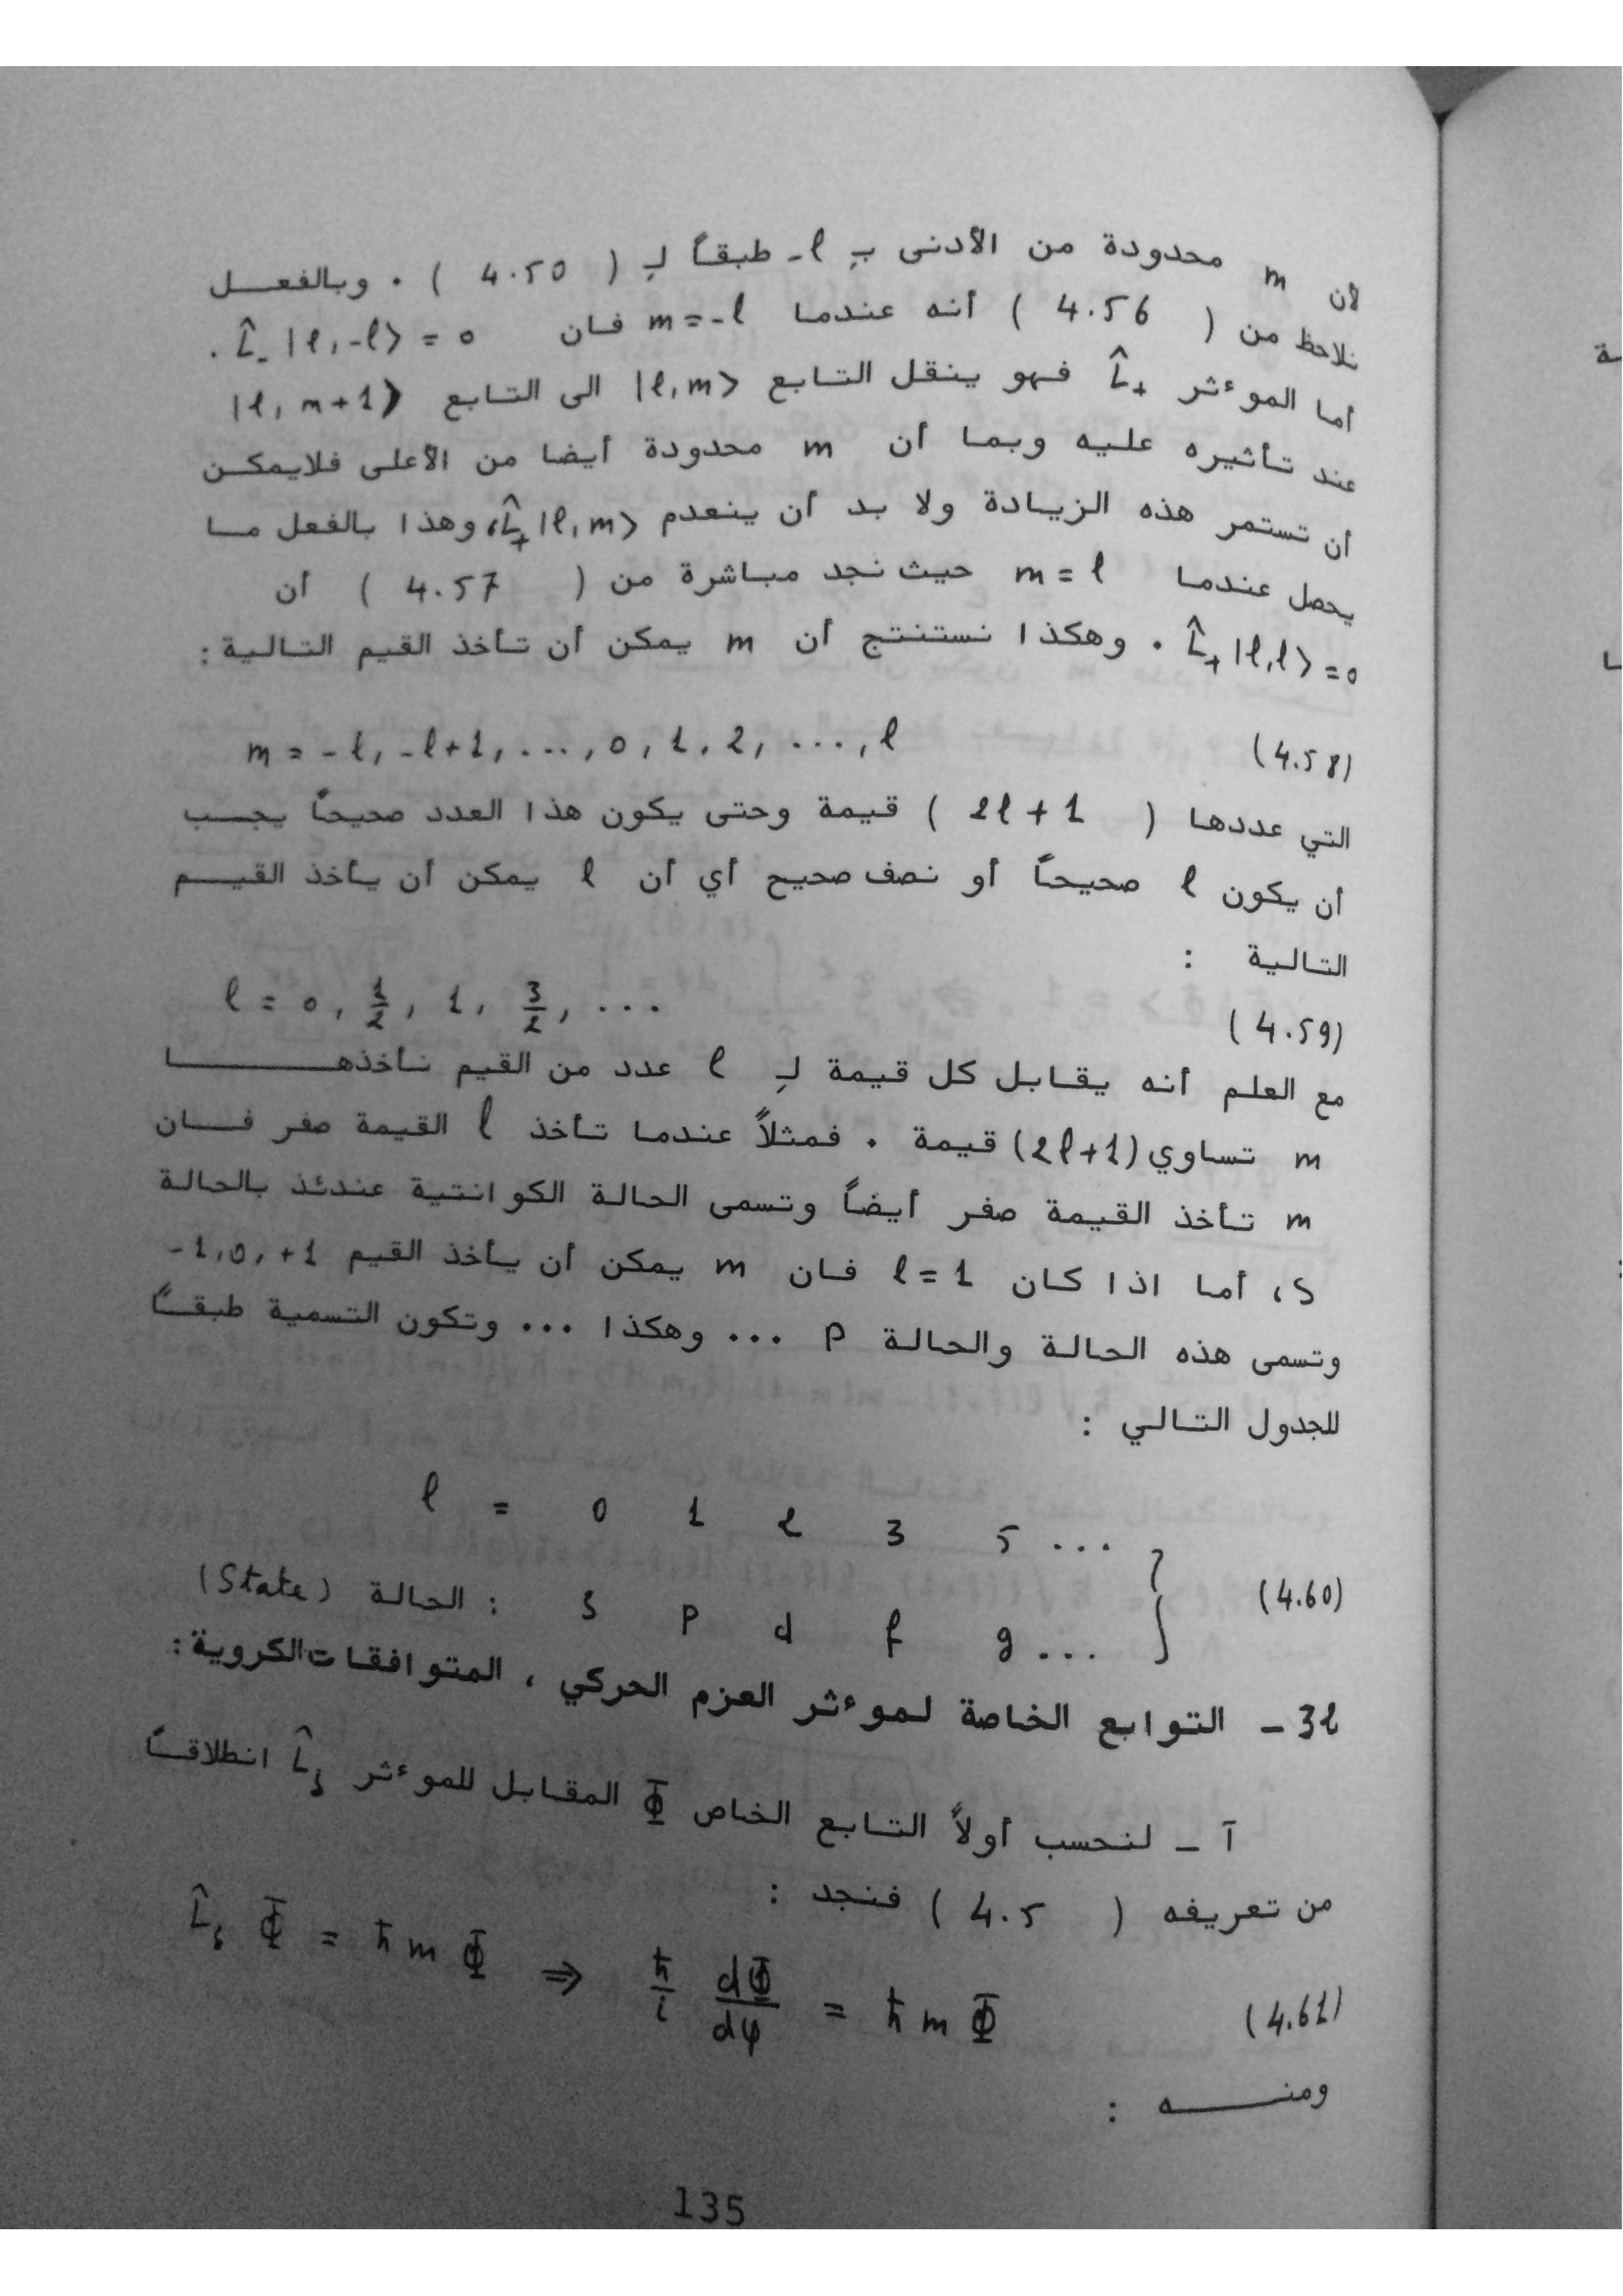 لأن m محدودة من الأدنى بـِ -ℓ طبقاً لـِ ( 4.50 ) . وبالفعل
نلاحظ من ( 4.56 ) أنه عندما m=-ℓ فان L̂₋|ℓ,-ℓ⟩ = 0 .
أما الموءثر L̂₊ فهو ينقل التابع |ℓ,m⟩ الى التابع |ℓ, m+1⟩
عند تأثيره عليه وبما أن m محدودة أيضا من الأعلى فلايمكن
أن تستمر هذه الزيادة ولا بد أن ينعدم L̂₊|ℓ,m⟩، وهذا بالفعل ما
يحصل عندما m=ℓ حيث نجد مباشرة من ( 4.57 ) أن
L̂₊|ℓ,ℓ⟩=0 . وهكذا نستنتج أن m يمكن أن تأخذ القيم التالية :
m = -ℓ, -ℓ+1, ..., 0, 1, 2, ..., ℓ (4.58)
التي عددها ( 2ℓ+1 ) قيمة وحتى يكون هذا العدد صحيحاً يجب
أن يكون ℓ صحيحاً أو نصف صحيح أي أن ℓ يمكن أن يأخذ القيم
التالية :
ℓ = 0, 1/2, 1, 3/2, ... (4.59)
مع العلم أنه يقابل كل قيمة لـِ ℓ عدد من القيم نأخذها
m تساوي (2ℓ+1) قيمة . فمثلاً عندما تأخذ ℓ القيمة صفر فان
m تأخذ القيمة صفر أيضاً وتسمى الحالة الكوانتية عندئذ بالحالة
S، أما اذا كان ℓ=1 فان m يمكن أن يأخذ القيم -1,0,+1
وتسمى هذه الحالة والحالة P ... وهكذا ... وتكون التسمية طبقاً
للجدول التالي :
ℓ = 0 1 2 3 5 ...
(State) الحالة : s p d f g ... } (4.60)
32 - التوابع الخاصة لموءثر العزم الحركي ، المتوافقات الكروية :
آ - لنحسب أولاً التابع الخاص Φ المقابل للموءثر L̂z انطلاقاً
من تعريفه ( 4.5 ) فنجد :
L̂z Φ = ħ m Φ ⇒ ħ/i dΦ/dφ = ħ m Φ (4.61)
ومنه :
135